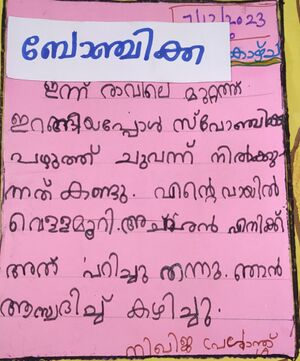 7/12/2023
ബോഞ്ചിക്ക
ഇന്ന് രാവിലെ മുറ്റത്ത്
ഇറങ്ങിയപ്പോൾ സ്പോഞ്ചിക്ക
പഴുത്ത് ചുവന്ന് നിൽക്കു
ന്നത് കണ്ടു. എന്റെ വായിൽ
വെള്ളമൂറി. അച്ഛൻ എനിക്ക്
അത് പറിച്ചു തന്നു. ഞാൻ
ആസ്വദിച്ച് കഴിച്ചു.